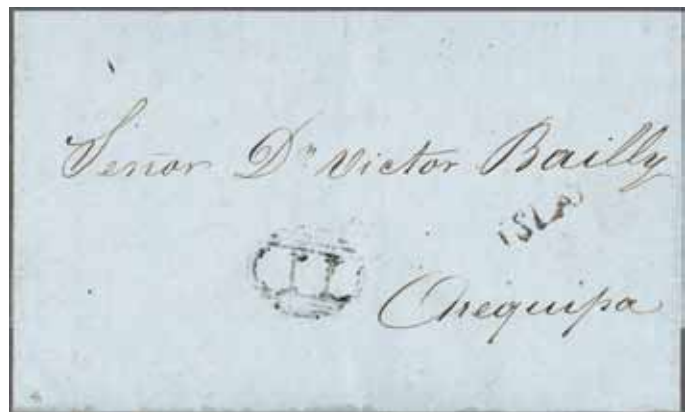 Señor Dn Victor Bailly
ISLAY
Arequipa